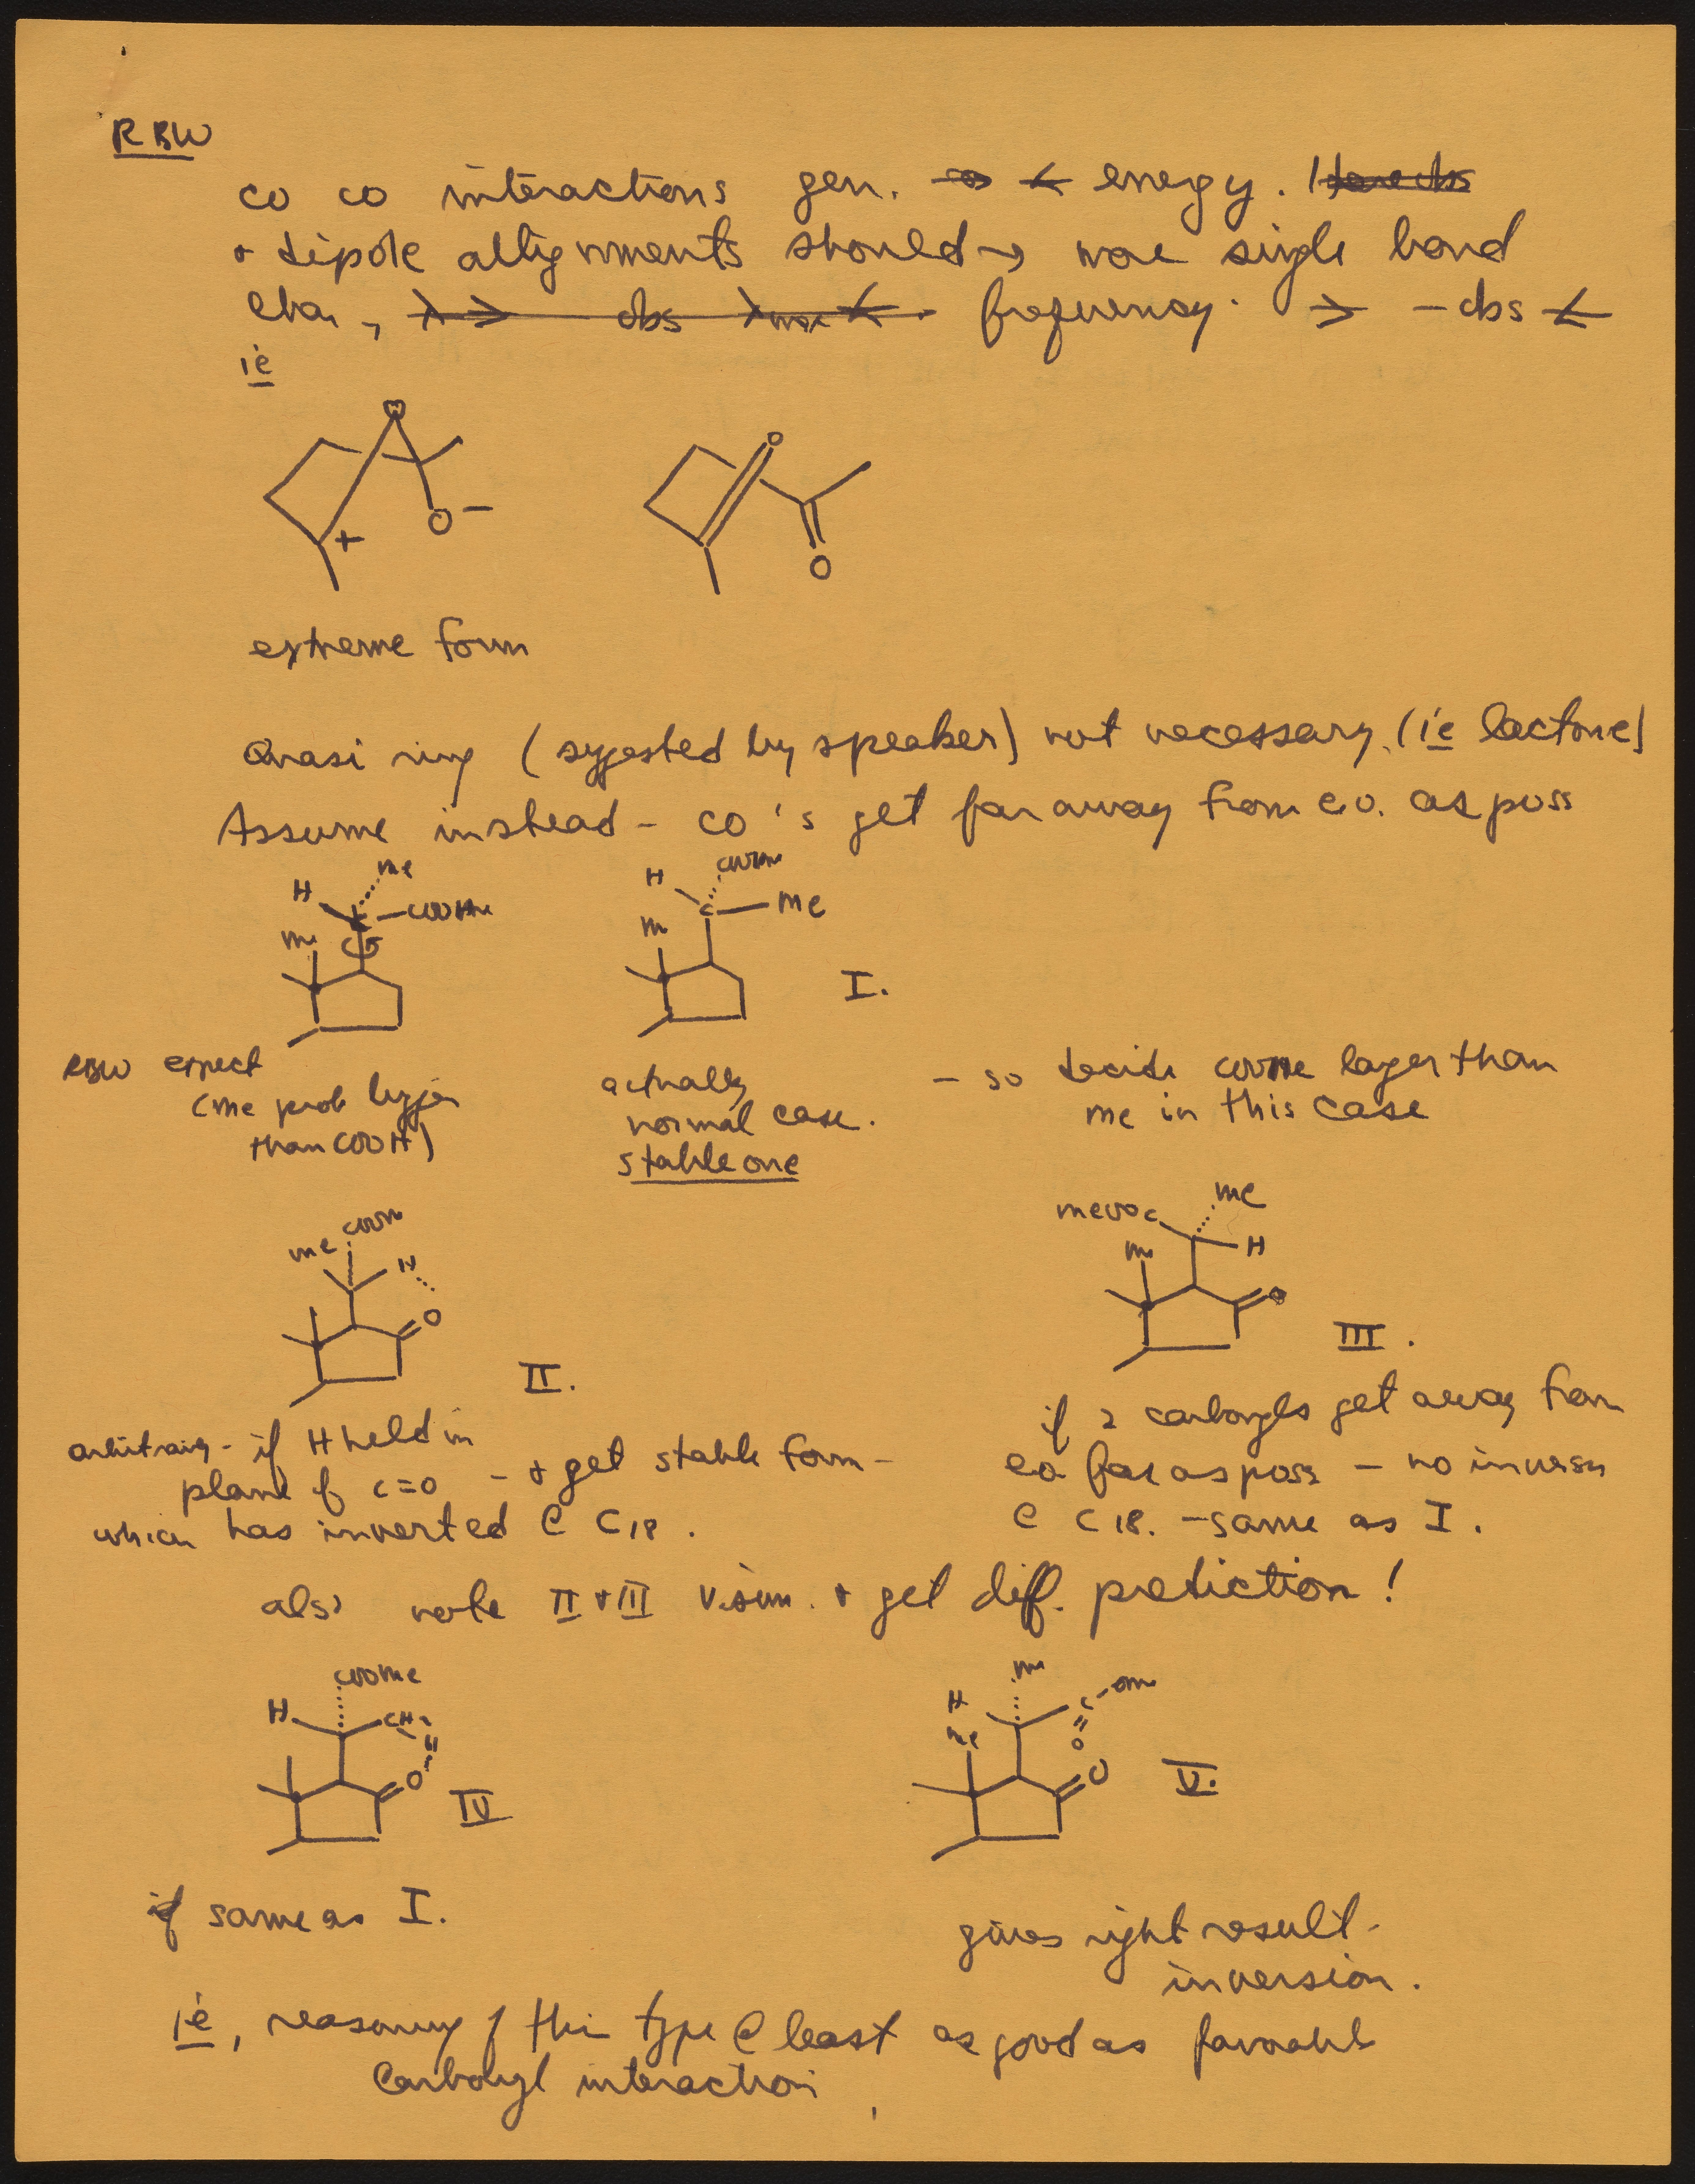 RBW
CO CO interactions gen. → < energy.
+ dipole allignments should → more single bond
char, frequency. > - obs <
ie
O
+
O −
O
O
extreme form
Quasi ring (suggested by speaker) not necessary. (ie lactone)
Assume instead - CO's get far away from ea. as poss
Me
H
C
COOMe
Me
COOMe
H
C
Me
Me
I.
RBW expect
(Me prob bigger
than COOH)
actually
normal case.
stable one
- so decide COOMe larger than
me in this case
COOMe
Me
H
O
II.
MeOOC
Me
Me
H
O
III.
arbitrary - if H held in
plane of C=O - + get stable form -
which has inverted @ C18.
if 2 carbonyls get away from
ea far as poss - no inversion
@ C18. - same as I.
also note II + III + get diff. prediction!
COOMe
H
CH2
O
IV
Me
H
Me
C
OMe
O
O
V.
same as I.
gives right result -
inversion.
ie, reasoning of this type @ least as good as favorable
Carbonyl interaction